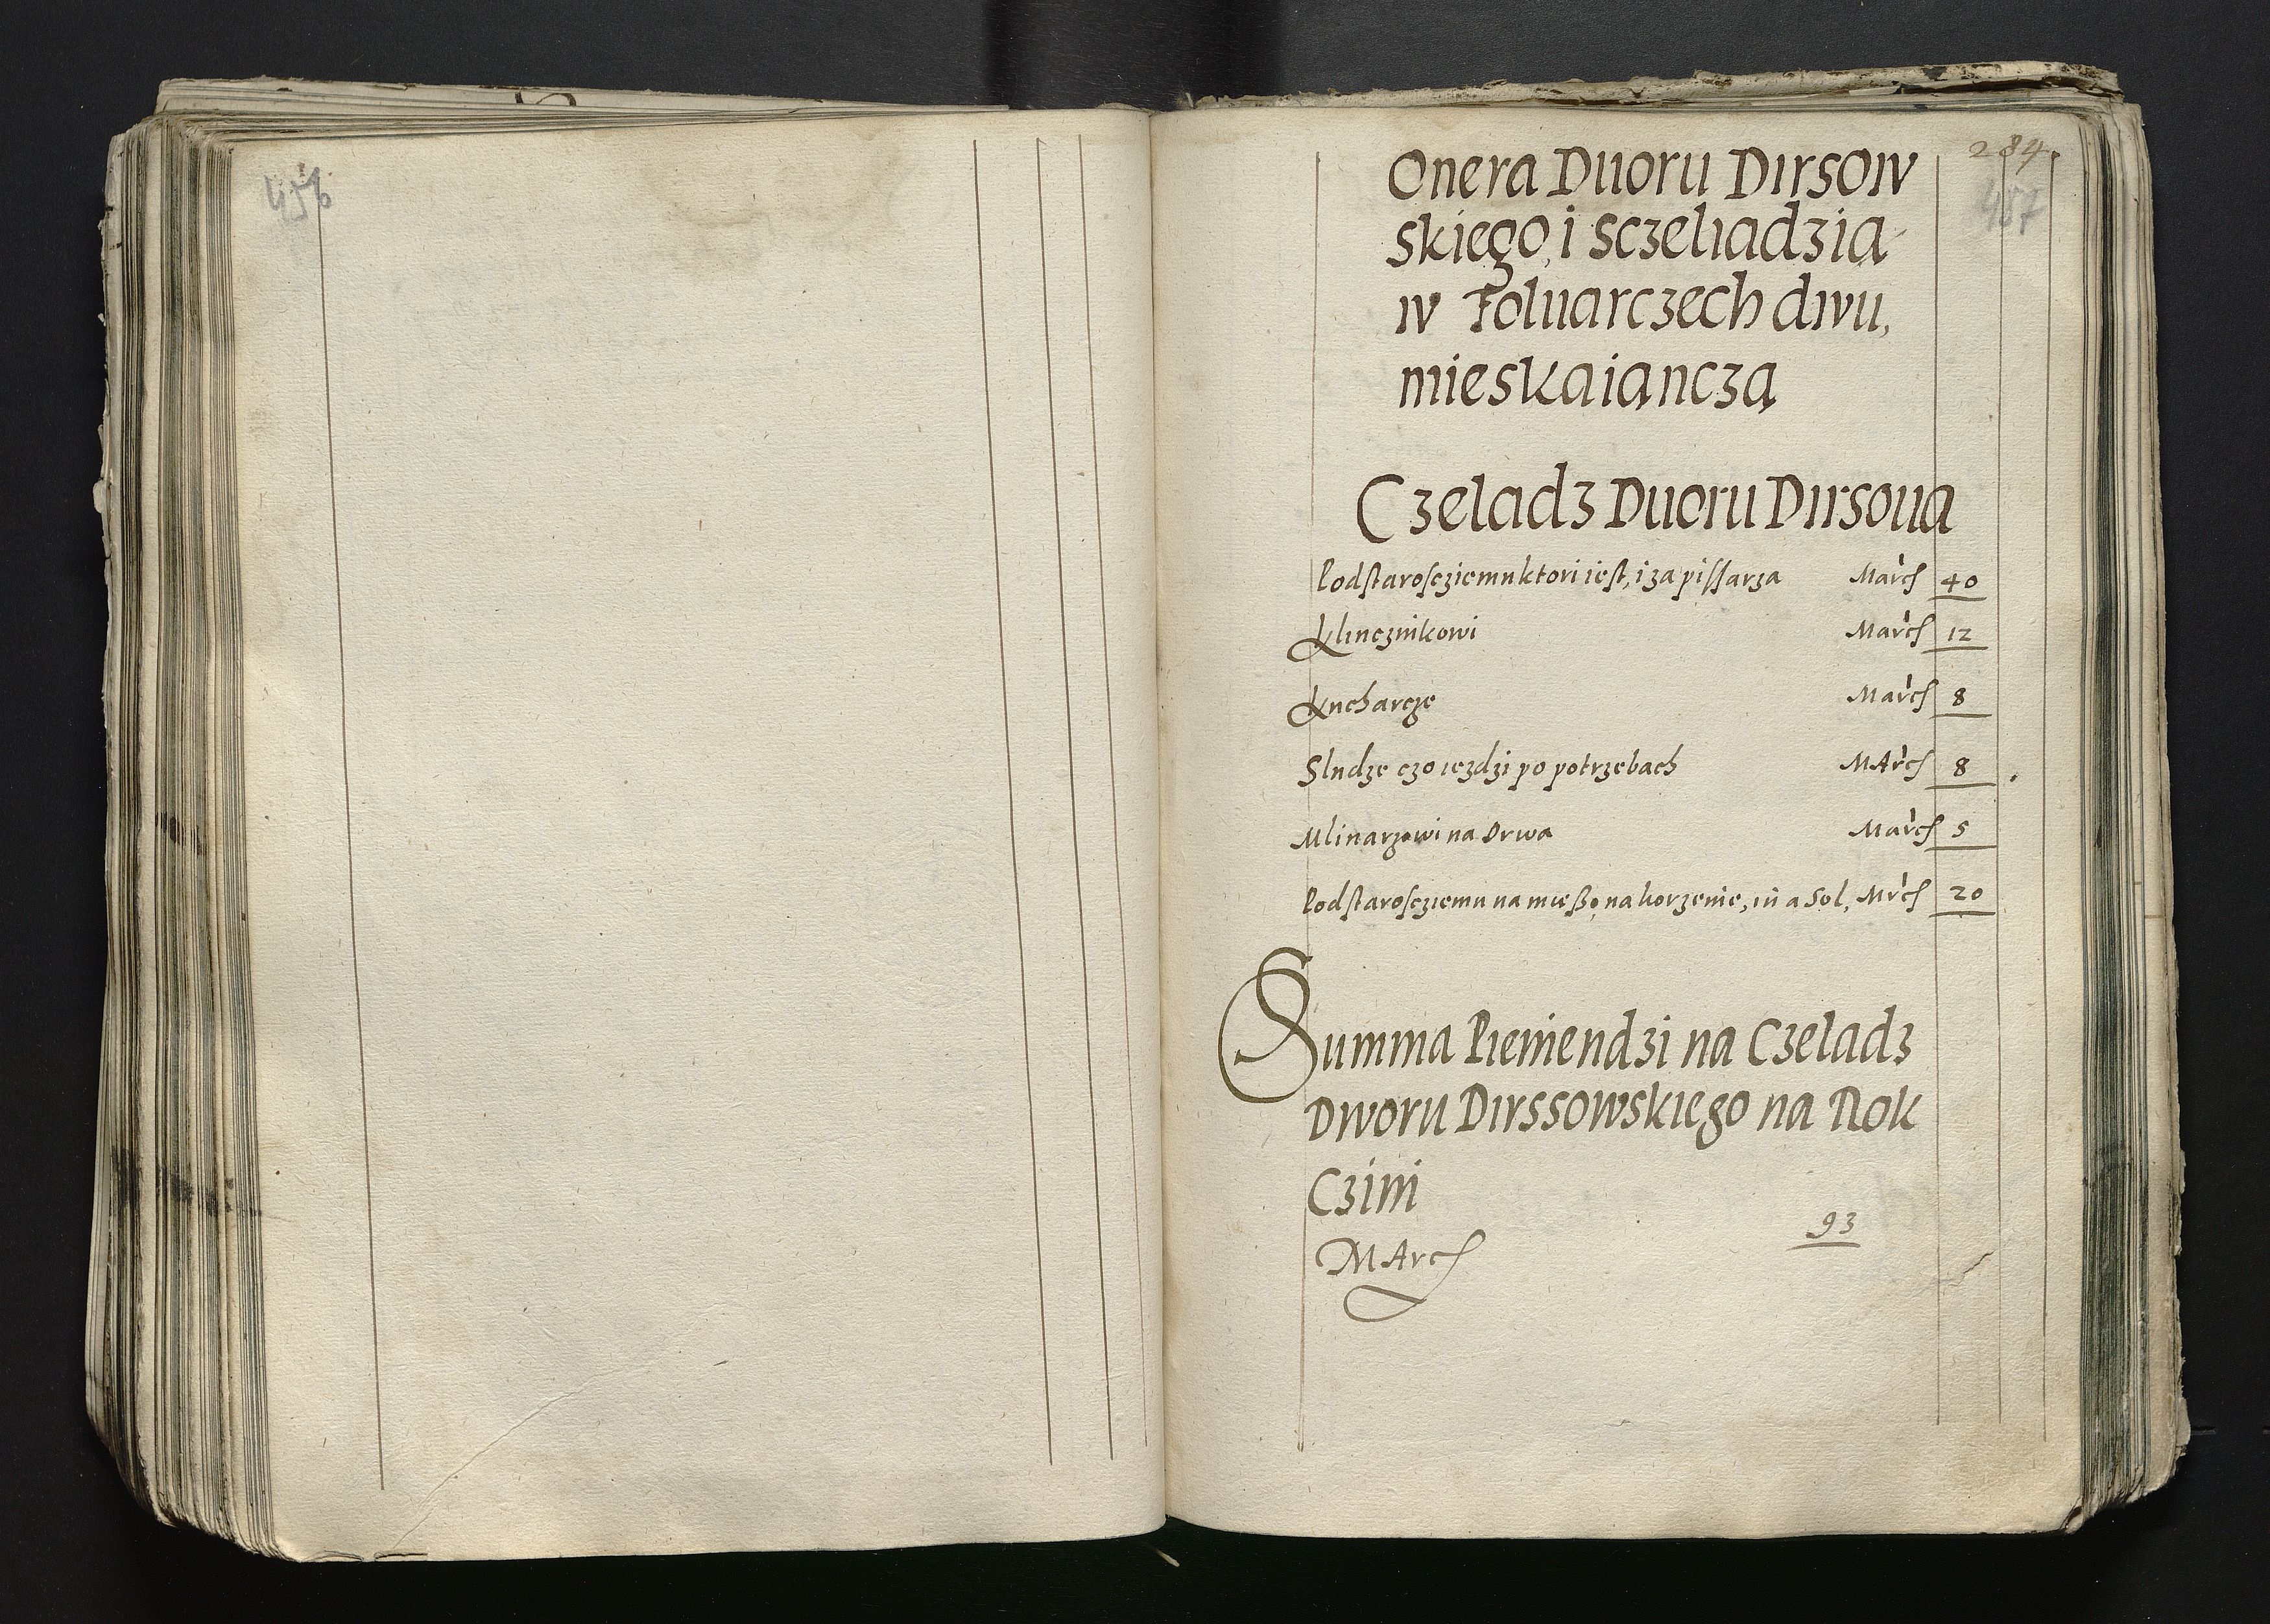 456
284
457
Onera Duoru Dirsow
skiego, i sczeliadzią
w Foluarczech dwu,
mieskaiąnczą
Czeladz Duoru Dirsoua
Podstaroscziemu ktori iest, i za pissarza March 40
Klucznikowi March 12
Kucharze March 8
Sludze czo iezdzi po potrzebach MArch 8
Mlinarzowi na Drwa March 5
Podstaroscziemu na mießo, na korzenie, i na Sol, Mrch 20
Summa Pieniendzi na Czeladz
Dworu Dirssowskiego na Rok
Czini
93
MArch